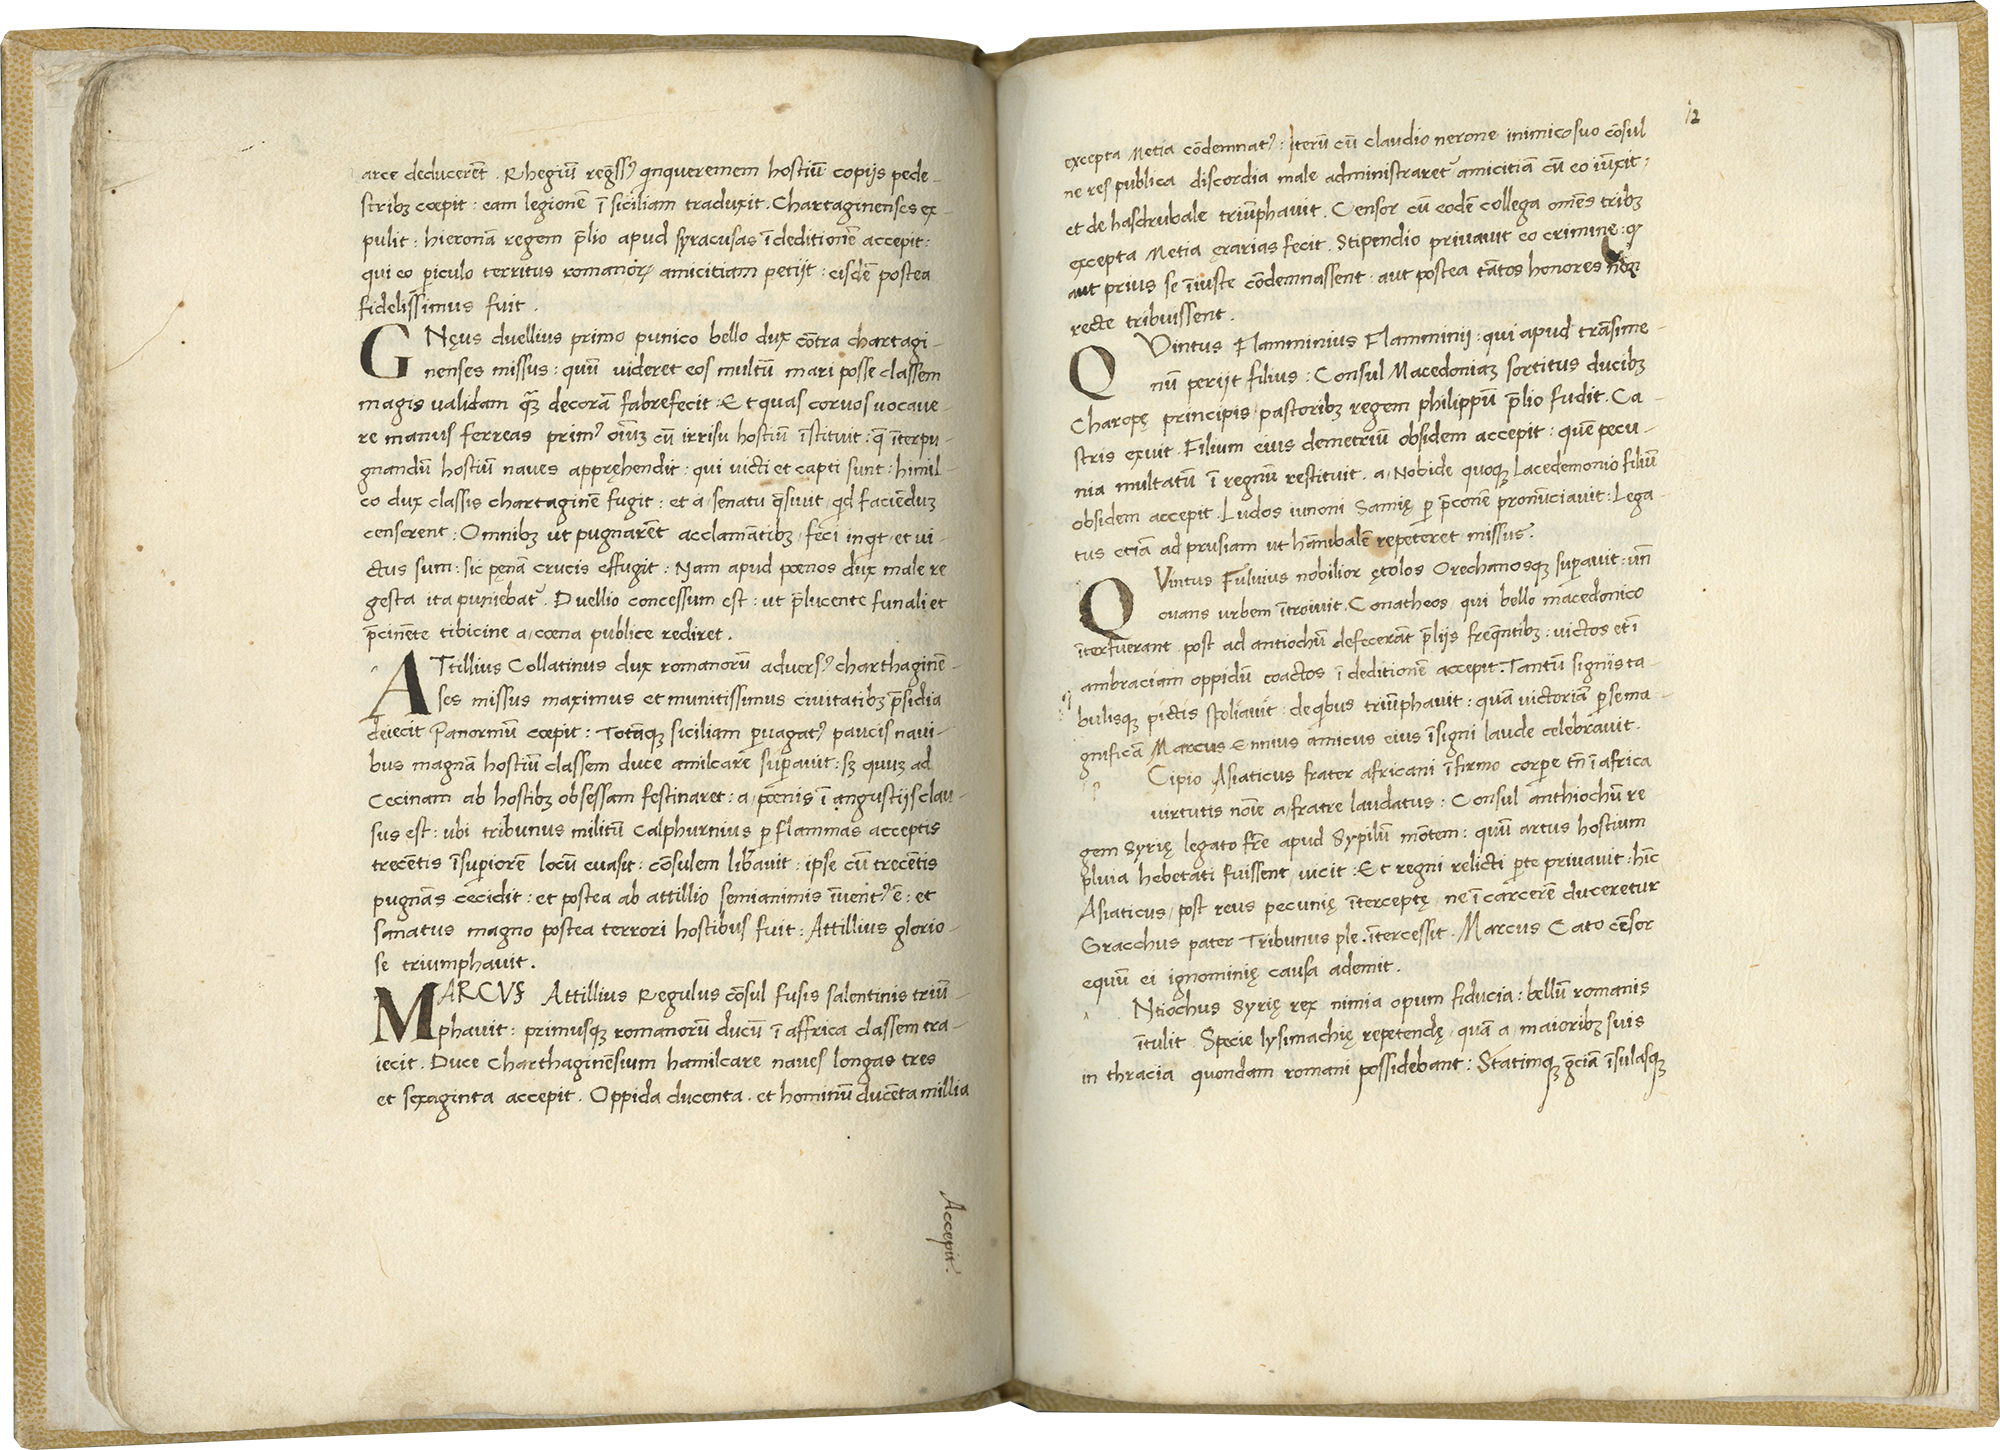 arce deducerēt . Rhegiū regss⁹ qnqueremem hostiū copijs pede-
stribꝫ cœpit : eam legionē ī siciliam traduxit . Chartaginenses ex-
pulit : hieronā regem p̄lio apud syracusas ī deditionē accepit :
qui eo ꝑiculo territus romanoꝝ amicitiam petijt : eisdē postea
fidelissimus fuit .
GNęus duellius primo punico bello dux cōtra chartagi-
nenses missus : quū videret eos multū mari posse classem
magis validam qꝫ decorā fabrefecit : Et quas corvos vocave-
re manus ferreas prim⁹ oīuꝫ cū irrisu hostiū īstituit : q̄ īterpu-
gnandū hostiū naves apprȩhendit : qui victi et capti sunt : himil-
co dux classis chartaginē fugit : et a / senatu q̄sivit / qd faciēduꝫ
censerent : Omnibꝫ ut pugnarēt acclamātibꝫ / feci inqt / et vi-
ctus sum : sic pęnā crucis effugit : Nam apud pœnos dux male re
gesta ita puniebat᷑ . Duellio concessum est : ut p̄lucente funali et
p̄cinēte tibicine a / cœna publice rediret .
ATtillius Collatinus dux romanorū advers⁹ charthaginē-
ses missus maximus et munitissimus civitatibꝫ p̄sidia
deiecit Panormū cœpit : Totāqꝫ siciliam ꝑvagat⁹ paucis navi-
bus magnā hostiū classem duce amilcare suꝑavit : sꝫ quuꝫ ad
Cecinam ab hostibꝫ obsessam festinaret : a / pœnis ī angustijs clau-
sus est : ubi tribunus militū Calphurnius ꝑ flammas acceptis
trecētis ī suꝑiorē locū evasit : cōsulem libavit : ipse cū trecētis
pugnās cecidit : et postea ab attillio semianimis īvent⁹ ē : et
sanatus magno postea terrori hostibus fuit : Attillius glorio-
se triumphavit .
MARCVS Attillius Regulus cōsul fusis salentinis triū-
phavit : primusqꝫ romanorū ducū ī affrica classem tra-
iecit . Duce Charthaginēsium hamilcare naves longas tres
et sexaginta accepit . Oppida ducenta . et hominū ducēta millia
Accepit .
12
excepta Metia cōdemnat⁹ : iterū cū claudio nerone inimico suo cōsul
ne res publica discordia male administraret᷑ amicitiā cū eo iūxit :
et de hasdrubale triūphavit . Censor cū eodē collega omēs tribꝫ
excepta Metia ęrarias fecit . Stipendio privavit eo crimine : qꝫ
aut prius se īiuste cōdemnassent : aut postea tātos honores nō
recte tribuissent .
QVintus Flamminius Flamminij : qui apud trāsime-
nū perijt filius : Consul Macedoniaꝫ sortitus ducibꝫ
Charopę principis / pastoribꝫ regem philippū p̄lio fudit . Ca-
stris exuit . Filium eius demetriū obsidem accepit : quē pecu-
nia multatū ī regnū restituit . a / Nobide quoqꝫ Lacedemonio filiū
obsidem accepit . Ludos iunoni Samię ꝑ p̄conē pronūciavit : Lega-
tus etiā ad prusiam ut hānibalē repeteret missus .
QVintus Fulvius nobilior ętolos Orechanosqꝫ suꝑavit : un̄
ovans urbem ītroivit . Conatheos / qui bello macedonico
īterfuerant / post ad antiochū defecerāt p̄lijs freq̄ntibꝫ : victos et ī
ambraciam oppidū coactos ī deditionē accepit . Tantū signis ta-
bulisqꝫ pictis spoliavit : de qbus triūphavit : quā victoriā ꝑ se ma-
gnificā Marcus Ennius amicus eius īsigni laude celebravit .
Cipio Asiaticus frater africani īfirmo corꝑe tn̄ ī africa
virtutis noīe a / fratre laudatus : Consul anthiochū re
gem Syrię legato frē apud Sypilū mōtem : quū artus hostium
pluvia hebetati fuissent / vicit : Et regni relicti ꝑte privavit : hīc
Asiaticus / post reus pecunię īterceptę / ne ī carcerē duceretur
Gracchus pater Tribunus ple . ītercessit . Marcus Cato cēsor
equū ei ignominię causa ademit .
Ntiochus Syrię rex nimia opum fiducia : bellū romanis
ītulit . Specie lysimachię repetendę / quā a / maioribꝫ suis
in thracia quondam romani possidebant : Statimqꝫ gręciā īsulasqꝫ